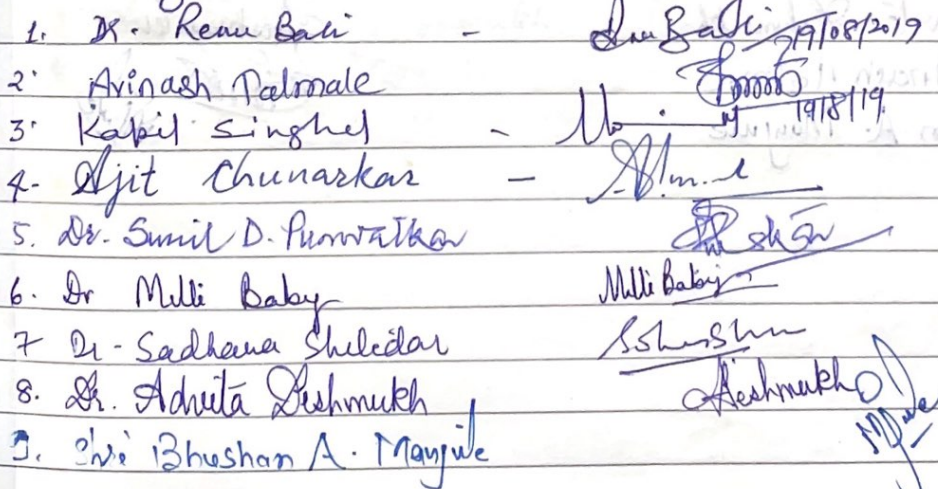 1. Dr. Renu Bali - Bali 19/08/2019
2. Avinash Talmale
3. Kapil Singhel - 19/8/19
4- Ajit Chunarkar -
5. Dr. Sunil D. Punwatkar
6. Dr Milli Baby Milli Baby
7 Dr - Sadhana Sheledar
8. Dr. Advita Deshmukh Deshmukh
9. Shri Bhushan A. Manjule